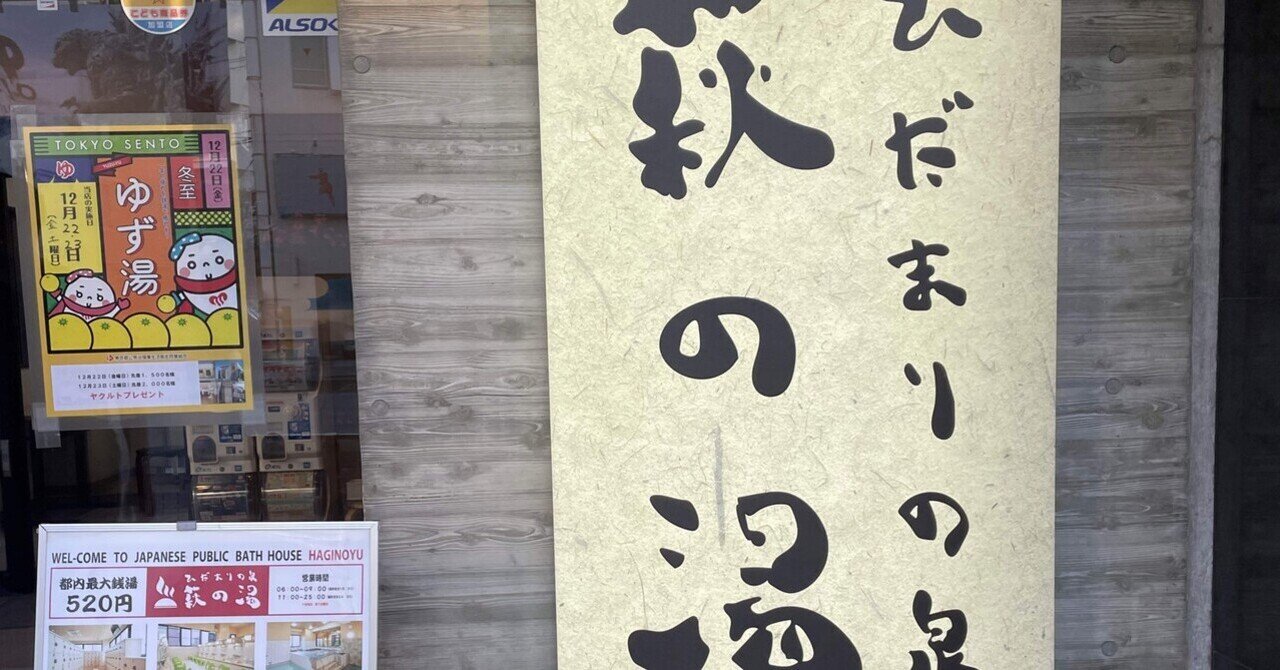 こども商品券
加盟店
ALSOK
TOKYO SENTO
12月22日(金)
冬至
ゆ
ゆず湯
当店の実施日
12月22.23日
(金 土曜日)
12月22日(金曜日)先着1,500名様
12月23日(土曜日)先着2,000名様
ヤクルトプレゼント
ひだまりの泉
萩の湯
WEL-COME TO JAPANESE PUBLIC BATH HOUSE HAGINOYU
都内最大銭湯
520円
ひだまりの泉
萩の湯
営業時間
06:00~09:00
11:00~25:00